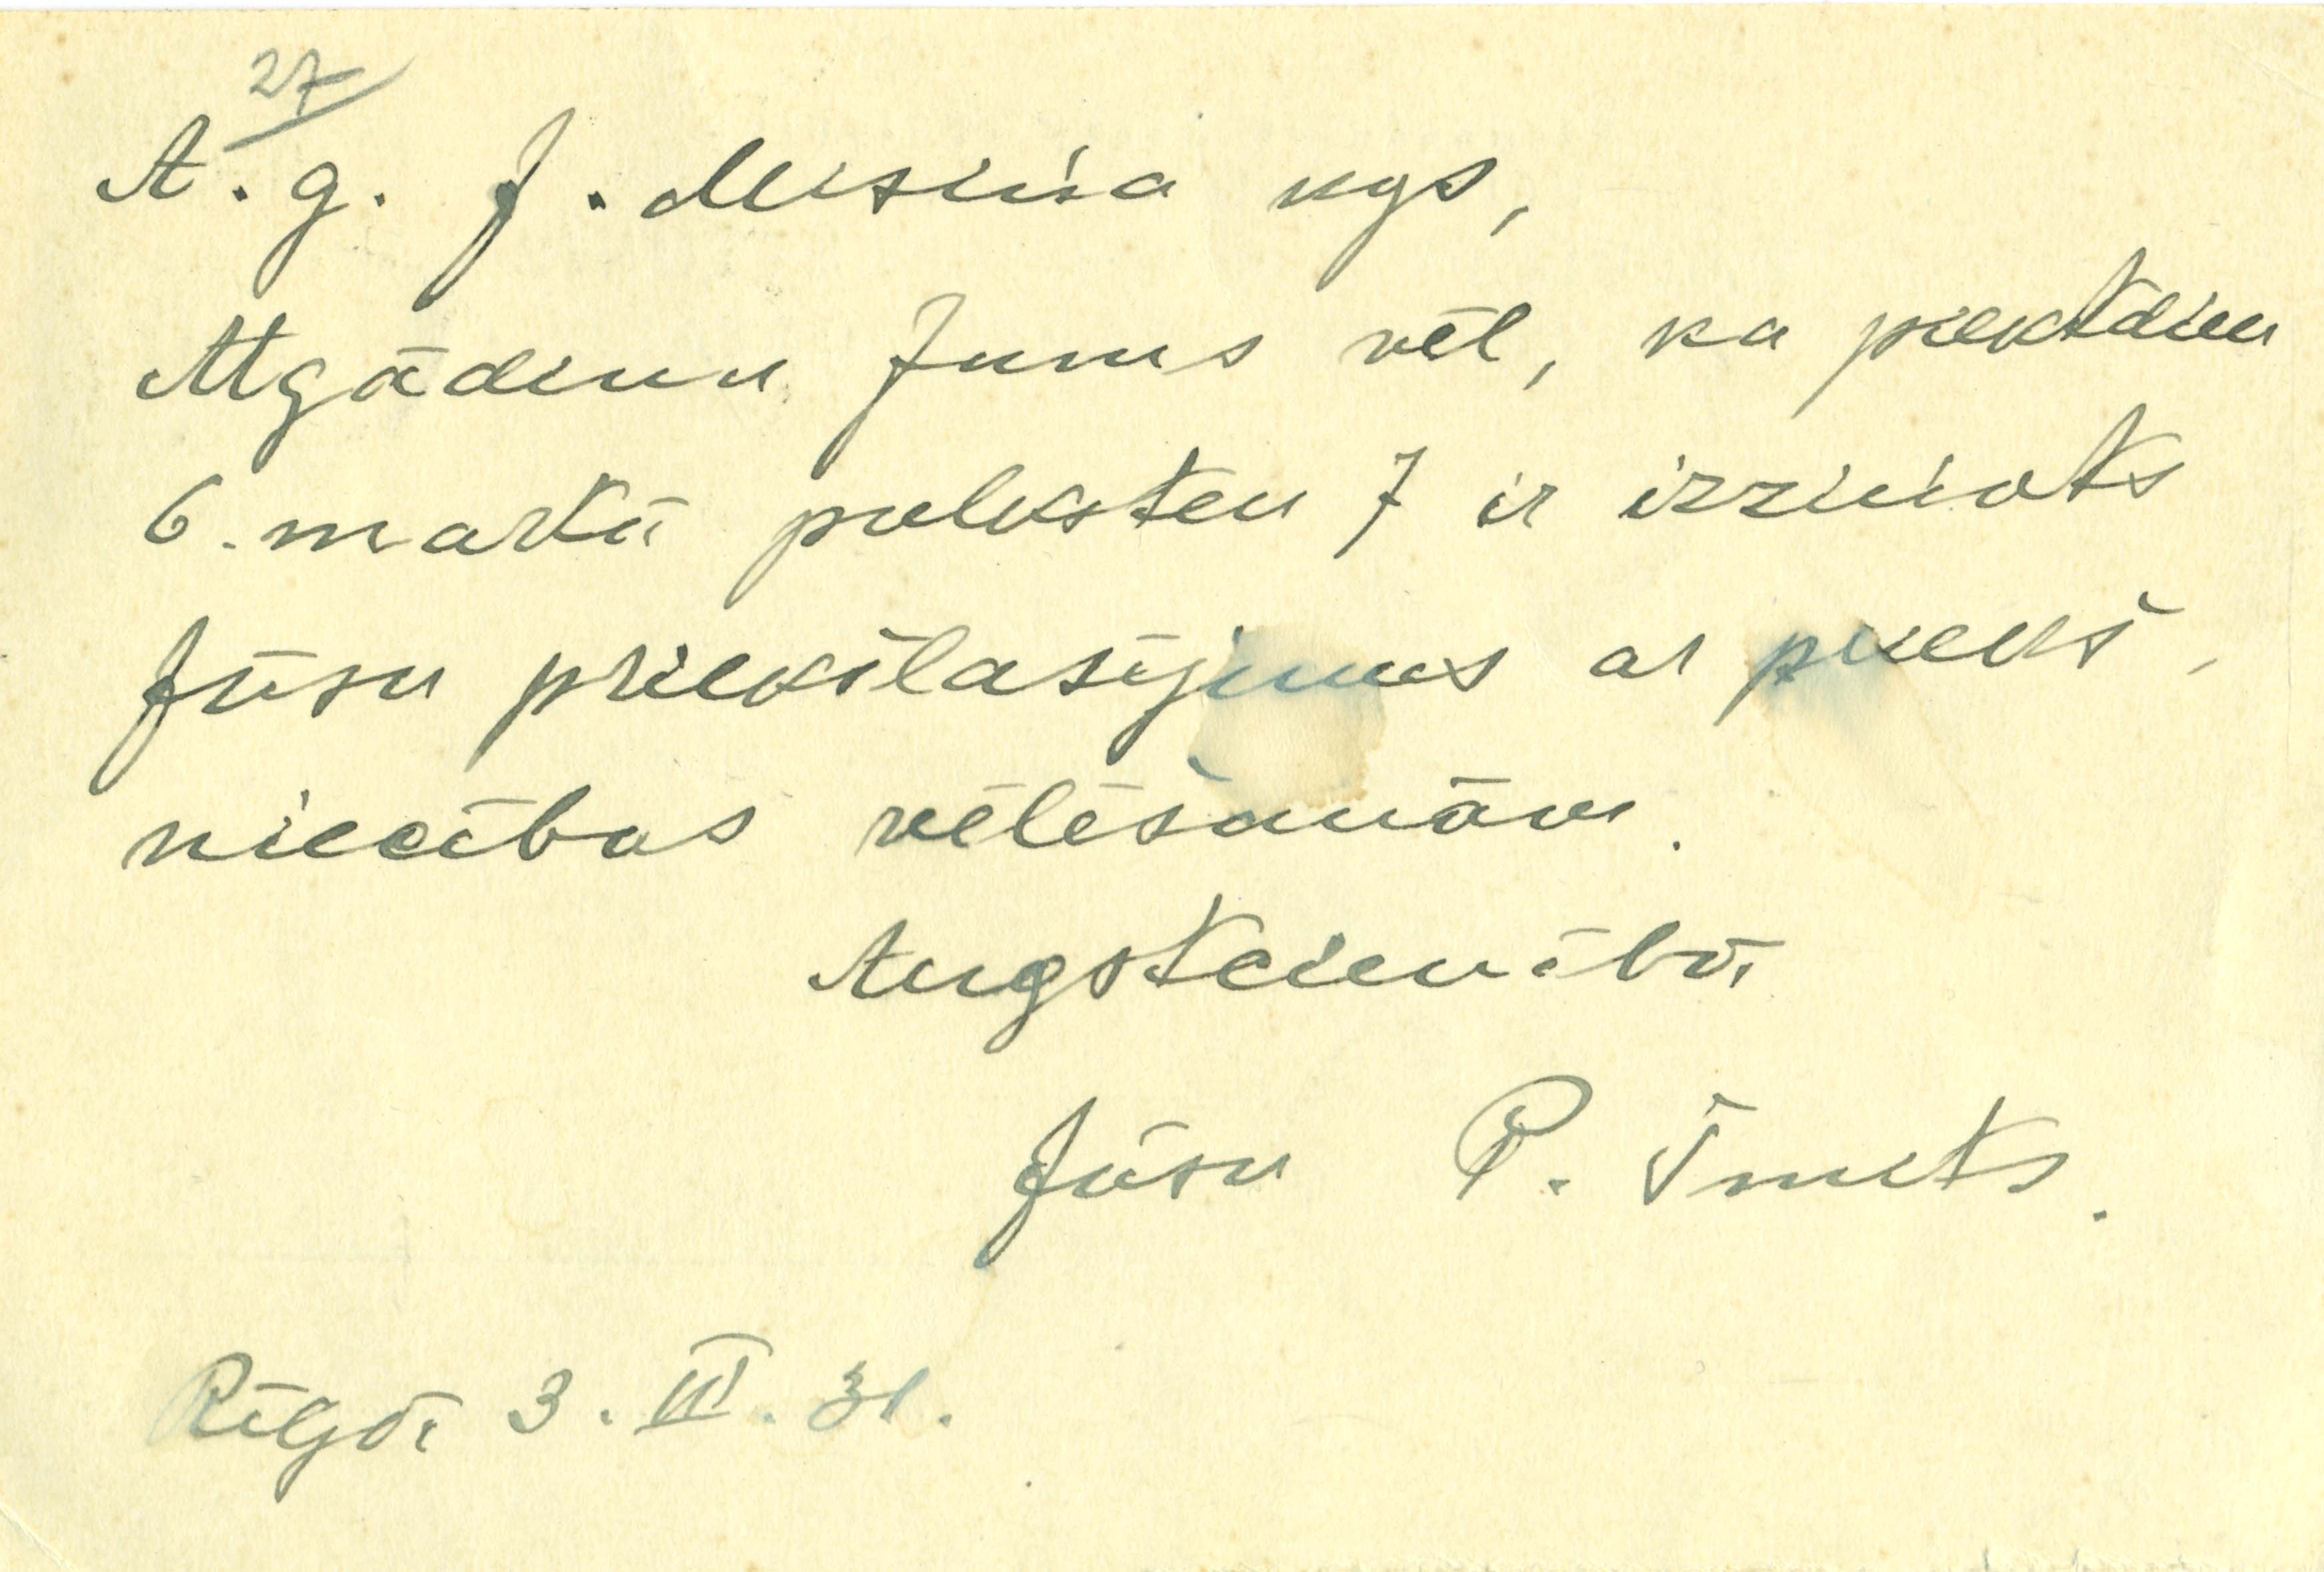 27
A. g. J. Misiņa kgs,
Atgādinu Jums vēl, ka piektdien
6. martā pulksten 7 ir izziņots
Jūsu priekšlasījums ar priekš,
niecības vēlēšanām.
Augstcienībā
Jūsu P. Šmits.
Rīgā, 3. III. 31.